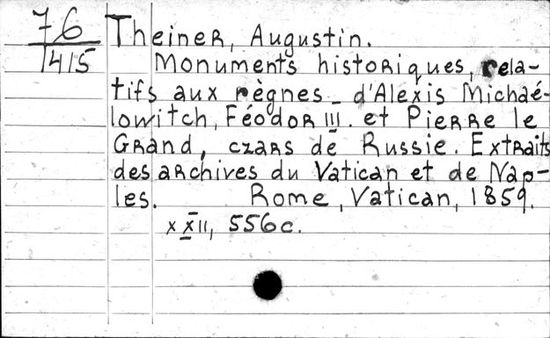 76 Theiner, Augustin.
1415 Monuments historiques, rela-
tifs aux règnes d'Alexis Michaé-
lowitch, Féodor III. et Pierre le
Grand, czars de Russie. Extraits
des archives du Vatican et de Nap-
les. Rome, Vatican, 1859.
XXII, 556c.